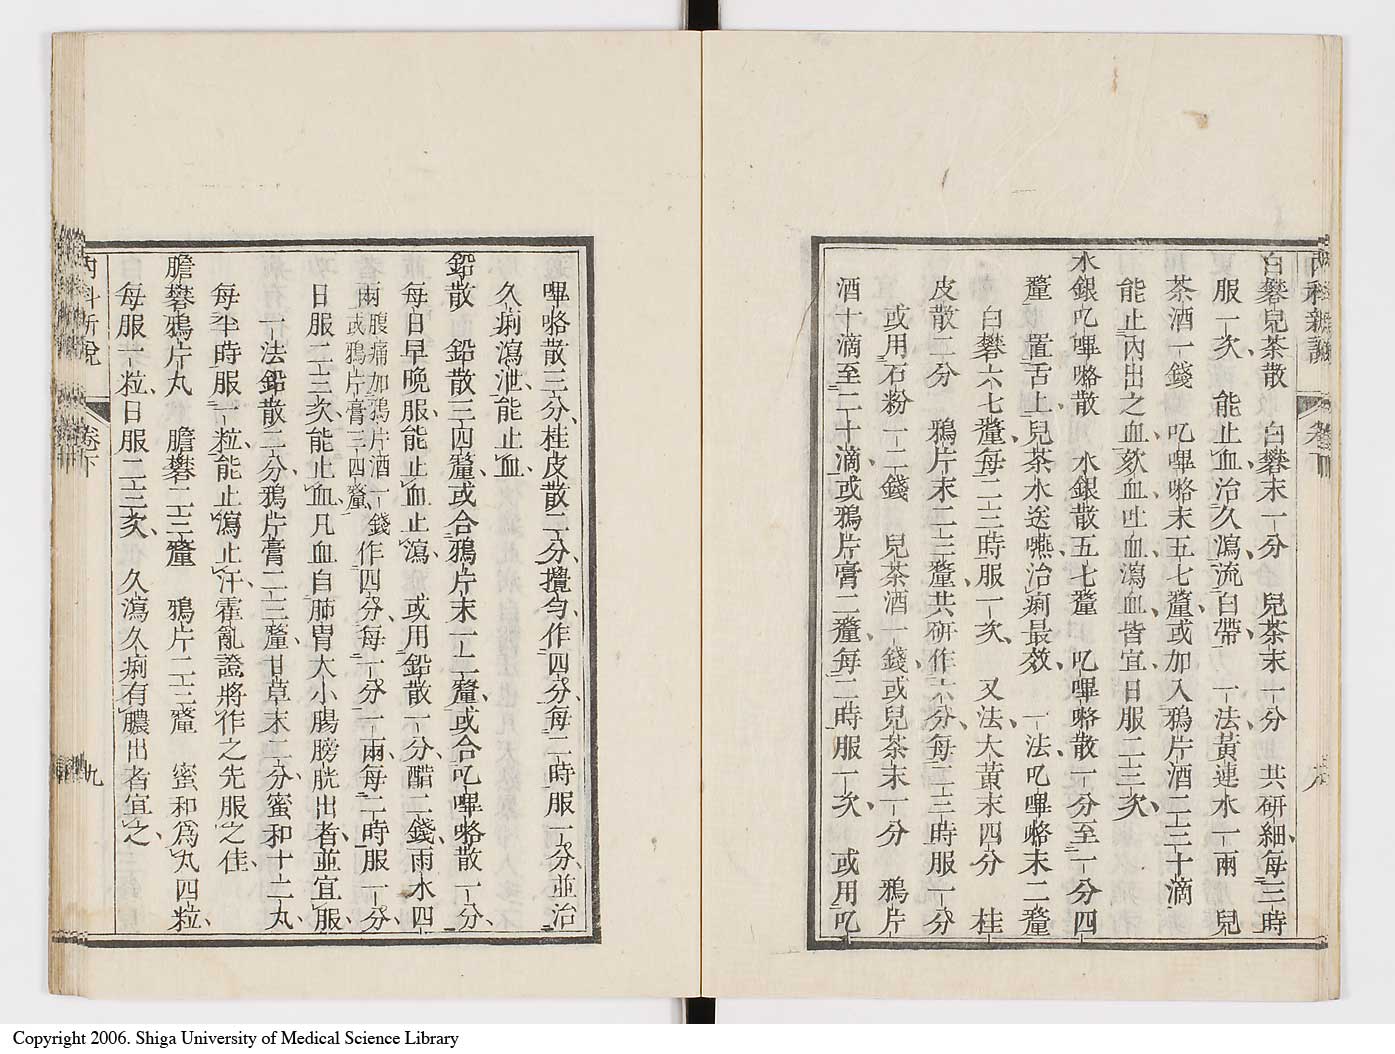 內科新說
白礬兒茶散　白礬末一分　兒茶末一分　共研細、每三時
服一次、　能止血、治久瀉、流白帶　一法、黃連水一兩　兒
茶酒一錢　叱嗶咯末五七釐、或加入鴉片酒二三十滴
能止內出之血、欬血、吐血、瀉血、皆宜、日服二三次、
水銀叱嗶咯散　水銀散五七釐　叱嗶咯散一分至一分四
釐　置舌上、兒茶水送嚥、治痢最效、　一法、叱嗶咯末二釐
白礬六七釐、每二三時服一次、　又法、大黃末四分　桂
皮散二分　鴉片末二三釐、共研作六分、每二三時服一分
或用石粉一二錢　兒茶酒一錢、或兒茶末一分　鴉片
酒十滴至二十滴、或鴉片膏二釐、每二時服一次、　或用叱
嗶咯散三分、桂皮散二分、攪勻、作四分、每二時服一分、並治
久痢瀉泄、能止血
鉛散　鉛散三四釐、或合鴉片末一二釐、或合叱嗶咯散一分、
每日早晚服、能止血止瀉、　或用鉛散一分、醋二錢、雨水四
兩腹痛加鴉片酒一錢或鴉片膏三四釐、作四分、每一分一兩每二時服一分、
日服二三次、能止血、凡血自肺胃大小腸膀胱出者、並宜服、
一法、鉛散二分、鴉片膏二三釐、甘草末二分、蜜和十二丸、
每半時服一粒、能止瀉止汗、霍亂證將作之先服之佳、
膽礬鴉片丸　膽礬二三釐　鴉片二三釐　蜜和爲丸四粒、
每服一粒、日服二三次、　久瀉久痢有膿出者宜之、
內科新說
卷下
九
Copyright 2006. Shiga University of Medical Science Library